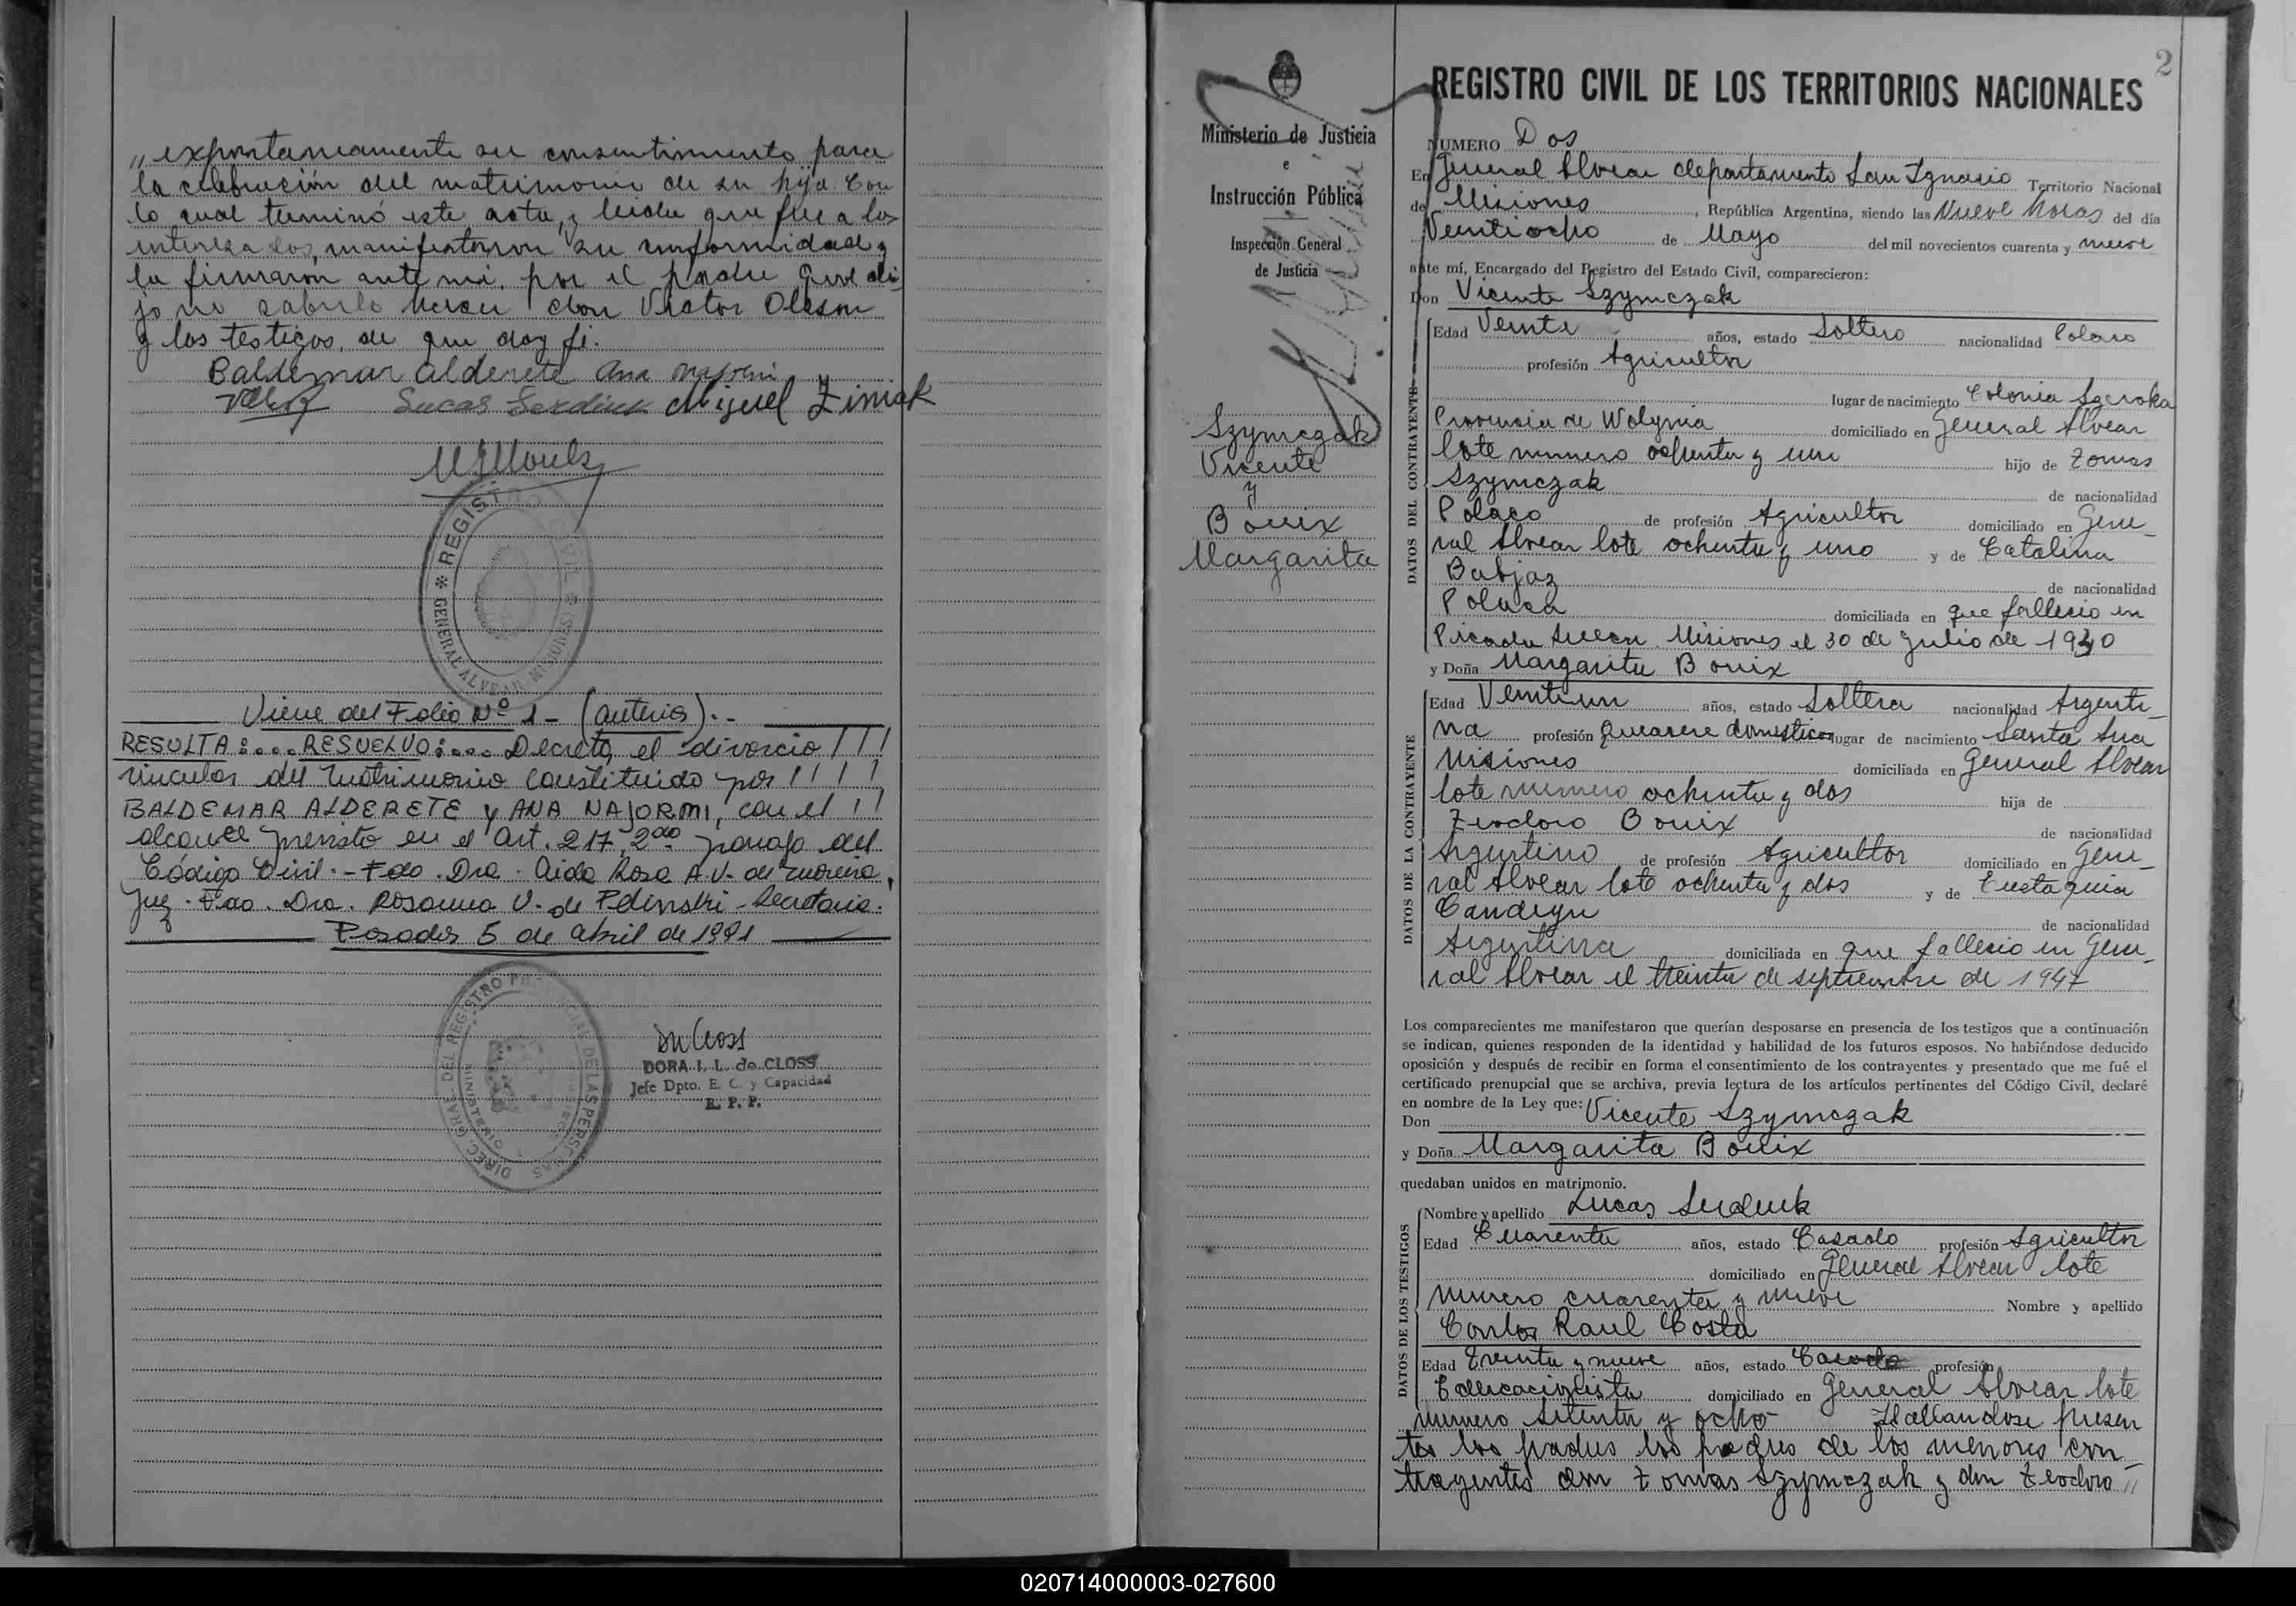 „ expontaneamente su consentimiento para
la celebración del matrimonio de su hija. Con
lo cual terminó este acta, y leida que fue a los
interesados, manifestaron su conformidad y
la firmaron ante mi, por el padre que di-
jo no saberlo hacer don Victor Oleson
y los testigos, de que doy fe.
Baldemar Alderete Ana Najormi
Lucas Serdiuk Miguel Ziniak
* REGISTRO CIVIL * GENERAL ALVEAR MISIONES
Viene del Folio Nº 1 - (anterior).-
RESULTA:.... RESUELVO:.... Decreto, el divorcio ! ! !
vincular del matrimonio constituido por ! ! ! !
BALDEMAR ALDERETE y ANA NAJORMI, con el ! !
alcance previsto en el art. 217, 2do párrafo del
Código Civil.- Fdo. Dra. Aida Rosa A.V. de
Juez. Fdo. Dra. Rosanna V. de - Secretaria.
Posadas 5 de abril de 1991
DIREC. GRAL. DEL REGISTRO PROVINCIAL DE LAS PERSONAS
DORA I. L. de CLOSS
Jefe Dpto. E. C. y Capacidad
R. P. P.
2
Ministerio de Justicia
e
Instrucción Pública
Inspección General
de Justicia
Szymczak
Vicente
y
Bouix
Margarita
REGISTRO CIVIL DE LOS TERRITORIOS NACIONALES
NUMERO Dos
En General Alvear departamento San Ignacio Territorio Nacional
de Misiones, República Argentina, siendo las Nueve horas del día
Veintiocho de Mayo del mil novecientos cuarenta y nueve
ante mí, Encargado del Registro del Estado Civil, comparecieron:
Don Vicente Szymczak
DATOS DEL CONTRAYENTE
Edad Veinte años, estado Soltero nacionalidad Polaco
profesión Agricultor
lugar de nacimiento Colonia Szeroka
Provincia de Wolynia domiciliado en General Alvear
lote numero ochenta y uno hijo de Tomas
Szymczak de nacionalidad
Polaco de profesión Agricultor domiciliado en Gene-
ral Alvear lote ochenta y uno y de Catalina
Babjaz de nacionalidad
Polaca domiciliada en que fallecio en
Picada Misiones el 30 de Julio de 1940
y Doña Margarita Bouix
DATOS DE LA CONTRAYENTE
Edad Veintiun años, estado Soltera nacionalidad Argenti-
na profesión Quehacere domesticos lugar de nacimiento Santa Ana
Misiones domiciliada en General Alvear
lote numero ochenta y dos hija de
Teodoro Bouix de nacionalidad
Argentino de profesión Agricultor domiciliado en Gene-
ral Alvear lote ochenta y dos y de Eustaquia
de nacionalidad
Argentina domiciliada en que fallecio en Gene-
ral Alvear el treinta de septiembre de 1947
Los comparecientes me manifestaron que querían desposarse en presencia de los testigos que a continuación
se indican, quienes responden de la identidad y habilidad de los futuros esposos. No habiéndose deducido
oposición y después de recibir en forma el consentimiento de los contrayentes y presentado que me fué el
certificado prenupcial que se archiva, previa lectura de los artículos pertinentes del Código Civil, declaré
en nombre de la Ley que:
Don Vicente Szymczak
y Doña Margarita Bouix
quedaban unidos en matrimonio.
DATOS DE LOS TESTIGOS
Nombre y apellido Lucas Serdiuk
Edad Cuarenta años, estado Casado profesión Agricultor
domiciliado en General Alvear lote
numero cuarenta y nueve Nombre y apellido
Carlos Raul Costa
Edad Treinta y nueve años, estado Casado profesión
Educacionista domiciliado en General Alvear lote
numero setenta y ocho Hallandose presen
tes los padres los padres de los menores con-
trayentes don Tomas Szymczak y don Teodoro „
020714000003-027600